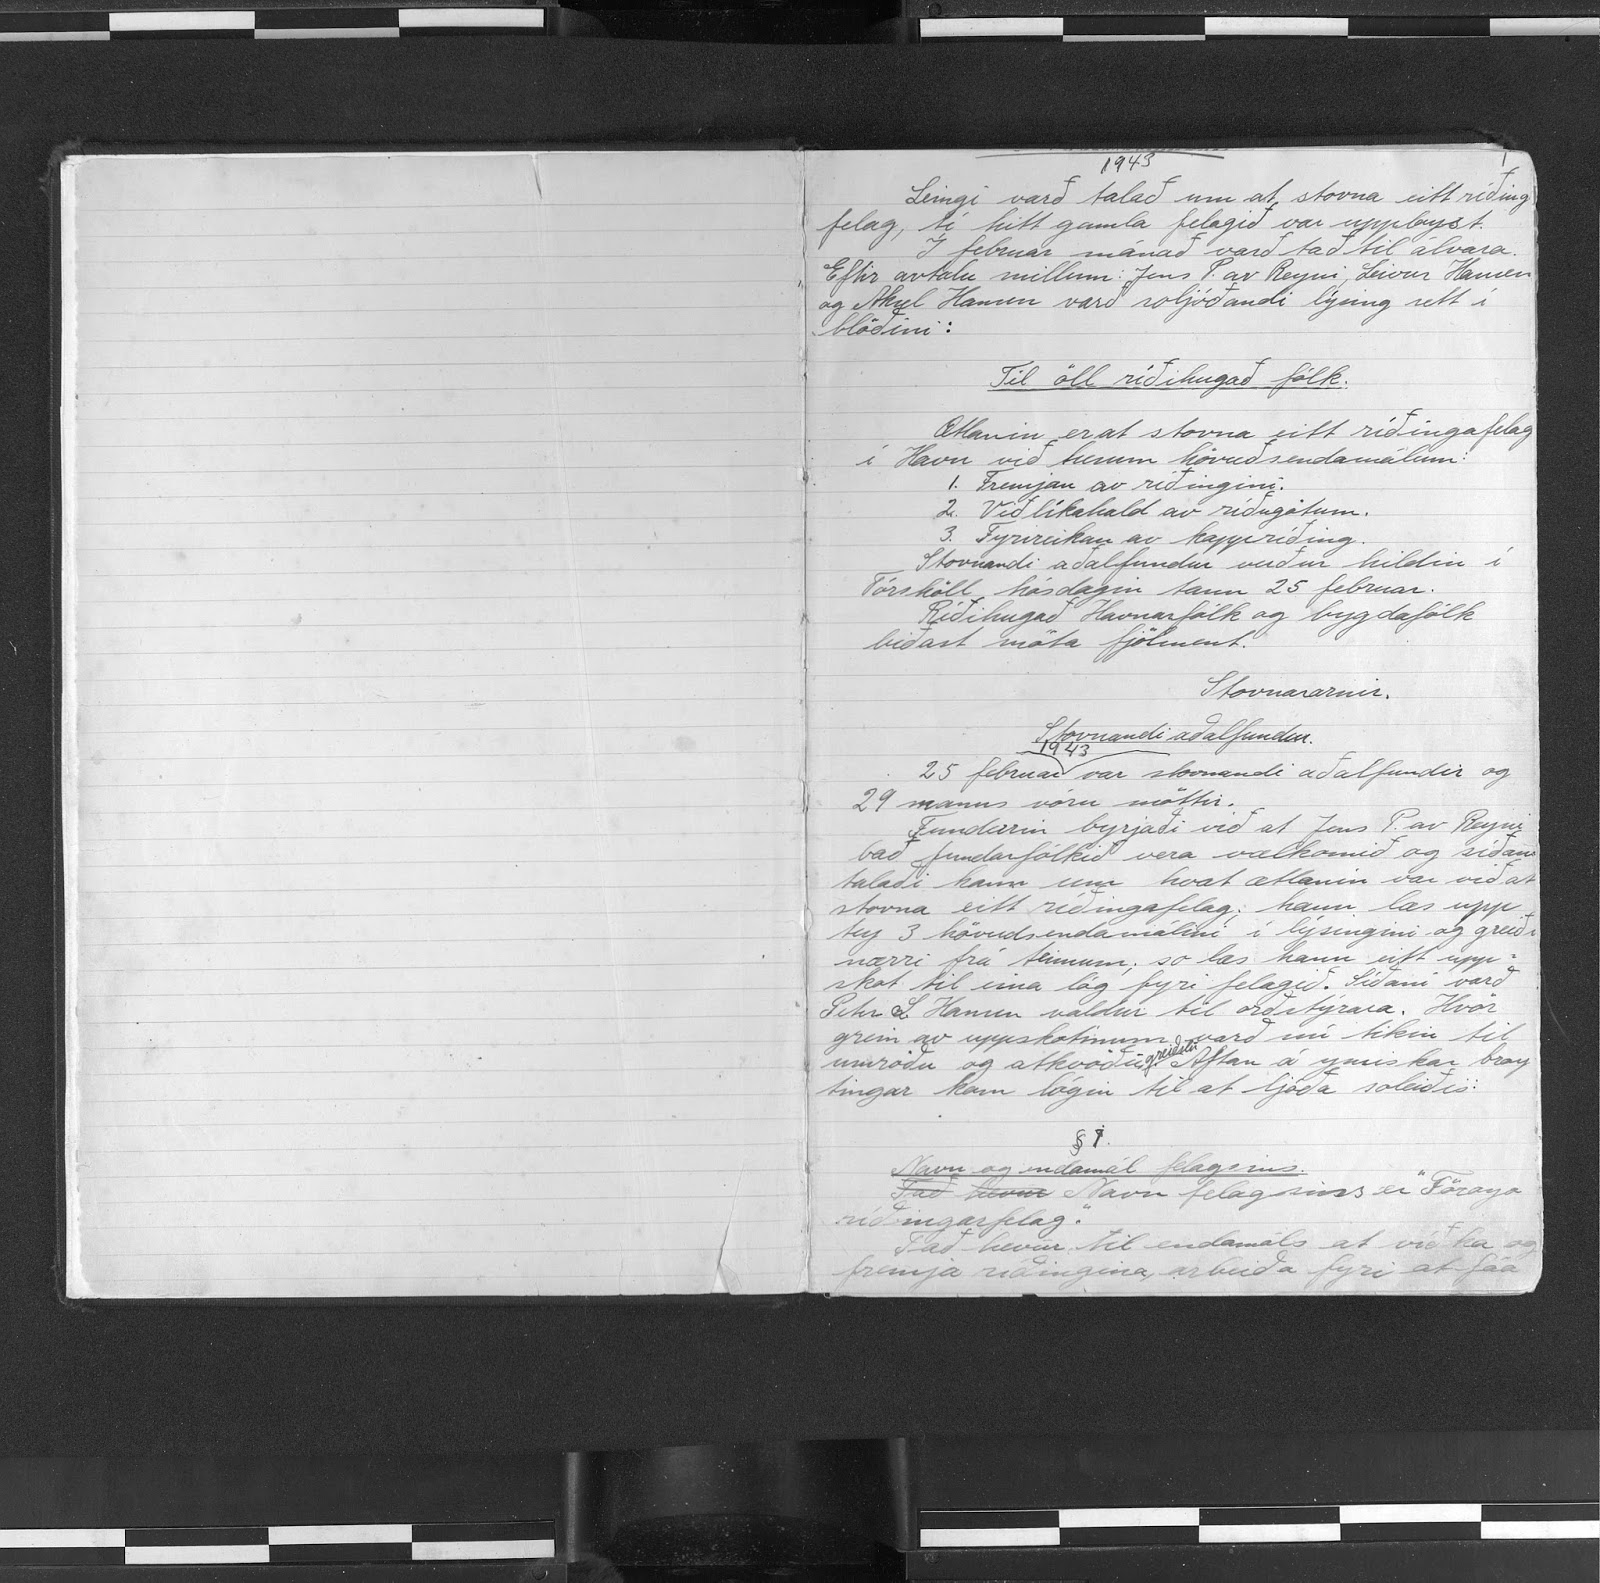 1943
1
Leingi varð talað um at stovna eitt ríðing
felag, tí hitt gamla felagið var upployst.
Í februar mánað varð tað til álvara.
Eftir avtalu millum: Jens P. av Reyni, Leivur Hansen
og Akul Hansen varð soljóðandi lýsing sett í
blöðini:
Til öll ríðihugað fólk.
Ætlanin er at stovna eitt ríðingafelag
í Havn við trimum hövuðsendamálum:
1. Fremjan av ríðingini.
2. Viðlíkahald av ríðugötum.
3. Fyrireikan av kappríðing.
Stovnandi aðalfundur verður hildin í
Tórshöll hósdagin tann 25 februar.
Ríðihugað Havnarfólk og bygdafólk
biðast möta fjölment.
Stovnararnir.
Stovnandi aðalfundur.
1943
25 februar var stovnandi aðalfundir og
29 manns vóru möttir.
Fundurin byrjaði við at Jens P. av Reyni
bað fundarfólkið vera vælkomið og síðani
talaði hann um hvat ætlanin var við at
stovna eitt ríðingafelag; hann las upp
tey 3 hövudsendamálini í lýsingini og greiði
nærri frá teimum; so las hann eitt upp=
skot til eina lóg fyri felagið. Síðani varð
Petur L Hansen valdur til orðstýrara. Hvör
grein av uppskotinum varð nú tikin til
umröðu og atkvöðu greiðslu. Aftan á ymiskar broy
tingar kom lógin til at ljóða soleiðis:
§ 1.
Navn og endamál felagsins.
Tað hevur Navn felagsins er "Föroya
ríðingarfelag."
Tað hevur til endamáls at víðka og
fremja ríðingina, arbeiða fyri at fáa